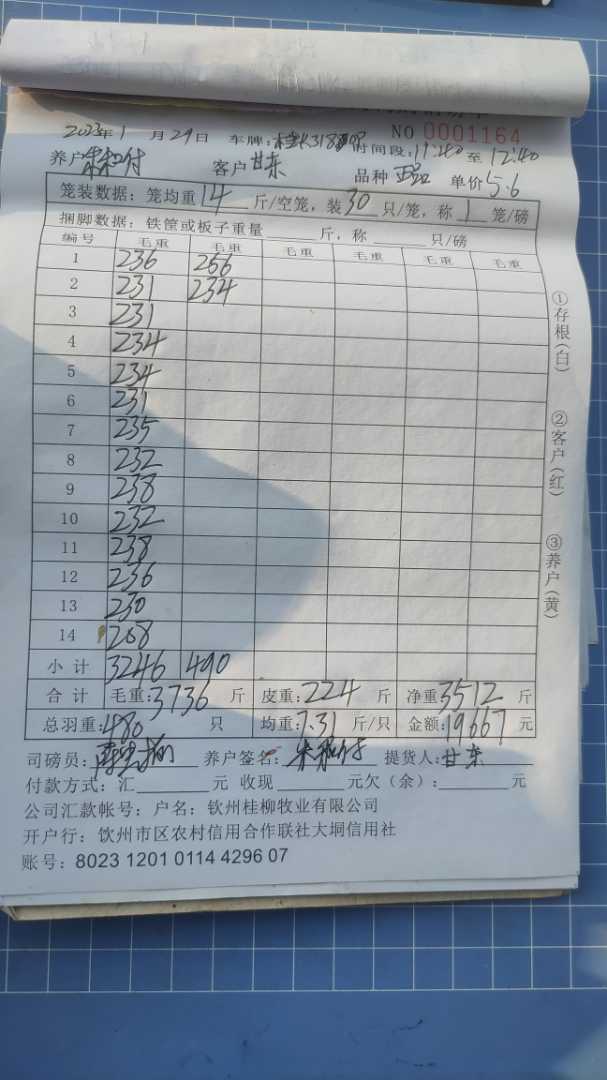 NO 0001164
2023年1月29日 车牌: 时间段:11:40至12:40
养户 客户甘东 品种 单价5.6
笼装数据：笼均重14斤/空笼，装30只/笼，称1笼/磅
捆脚数据：铁筐或板子重量 斤，称 只/磅
编号 毛重 毛重 毛重 毛重 毛重 毛重
1 236 256
2 231 234
3 231
4 234
5 234
6 231
7 235
8 232
9 238
10 232
11 238
12 236
13 230
14 208
小计 3246 490
合计 毛重:3736斤 皮重:224斤 净重3512斤
总羽重:480只 均重:7.31斤/只 金额:19667元
司磅员: 养户签名: 提货人:甘东
付款方式：汇 元 收现 元欠（余）: 元
公司汇款帐号：户名：钦州桂柳牧业有限公司
开户行：钦州市区农村信用合作联社大垌信用社
账号：8023 1201 0114 4296 07
①存根(白)
②客户(红)
③养户(黄)